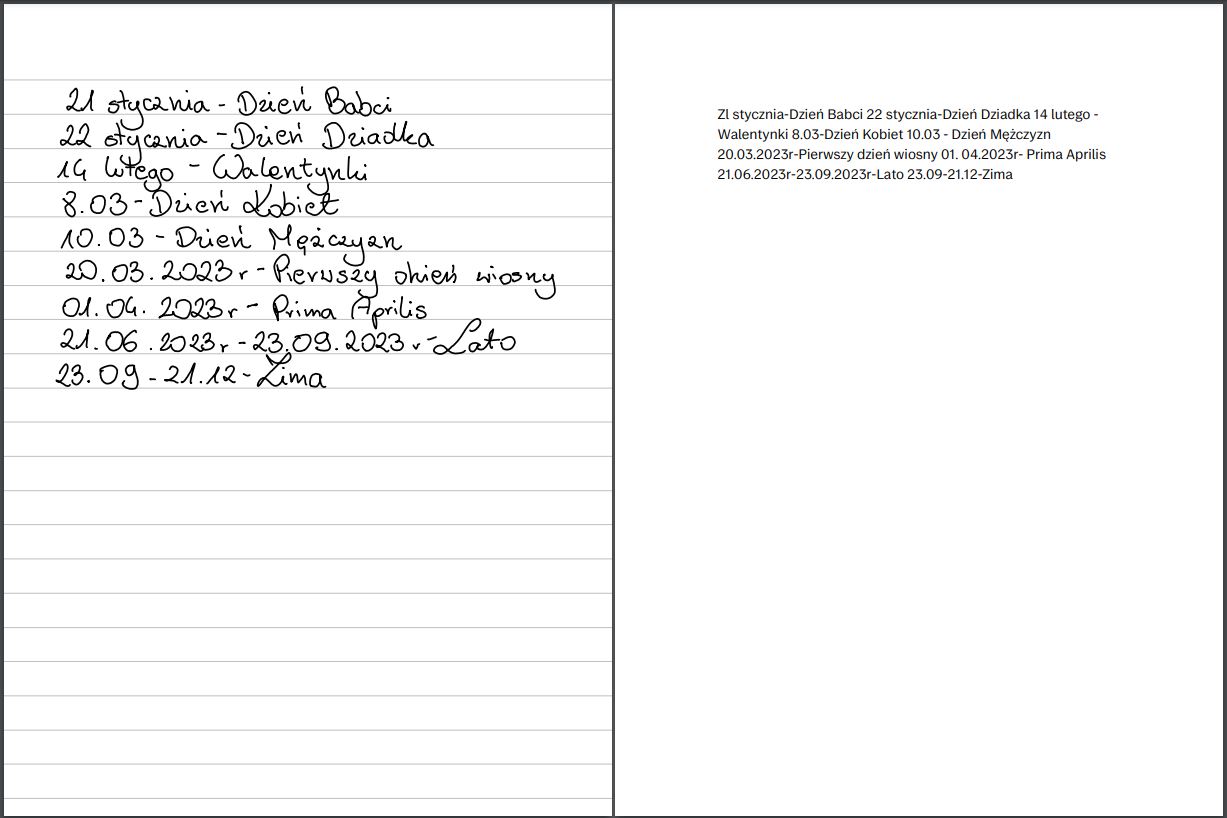 21 stycznia - Dzień Babci
22 stycznia - Dzień Dziadka
14 lutego - Walentynki
8.03 - Dzień Kobiet
10.03 - Dzień Mężczyzn
20.03.2023r - Pierwszy dzień wiosny
01.04. 2023r - Prima Aprilis
21.06.2023r - 23.09.2023r - Lato
23.09 - 21.12 - Zima
Zl stycznia-Dzień Babci 22 stycznia-Dzień Dziadka 14 lutego -
Walentynki 8.03-Dzień Kobiet 10.03 - Dzień Mężczyzn
20.03.2023r-Pierwszy dzień wiosny 01. 04.2023r- Prima Aprilis
21.06.2023r-23.09.2023r-Lato 23.09-21.12-Zima